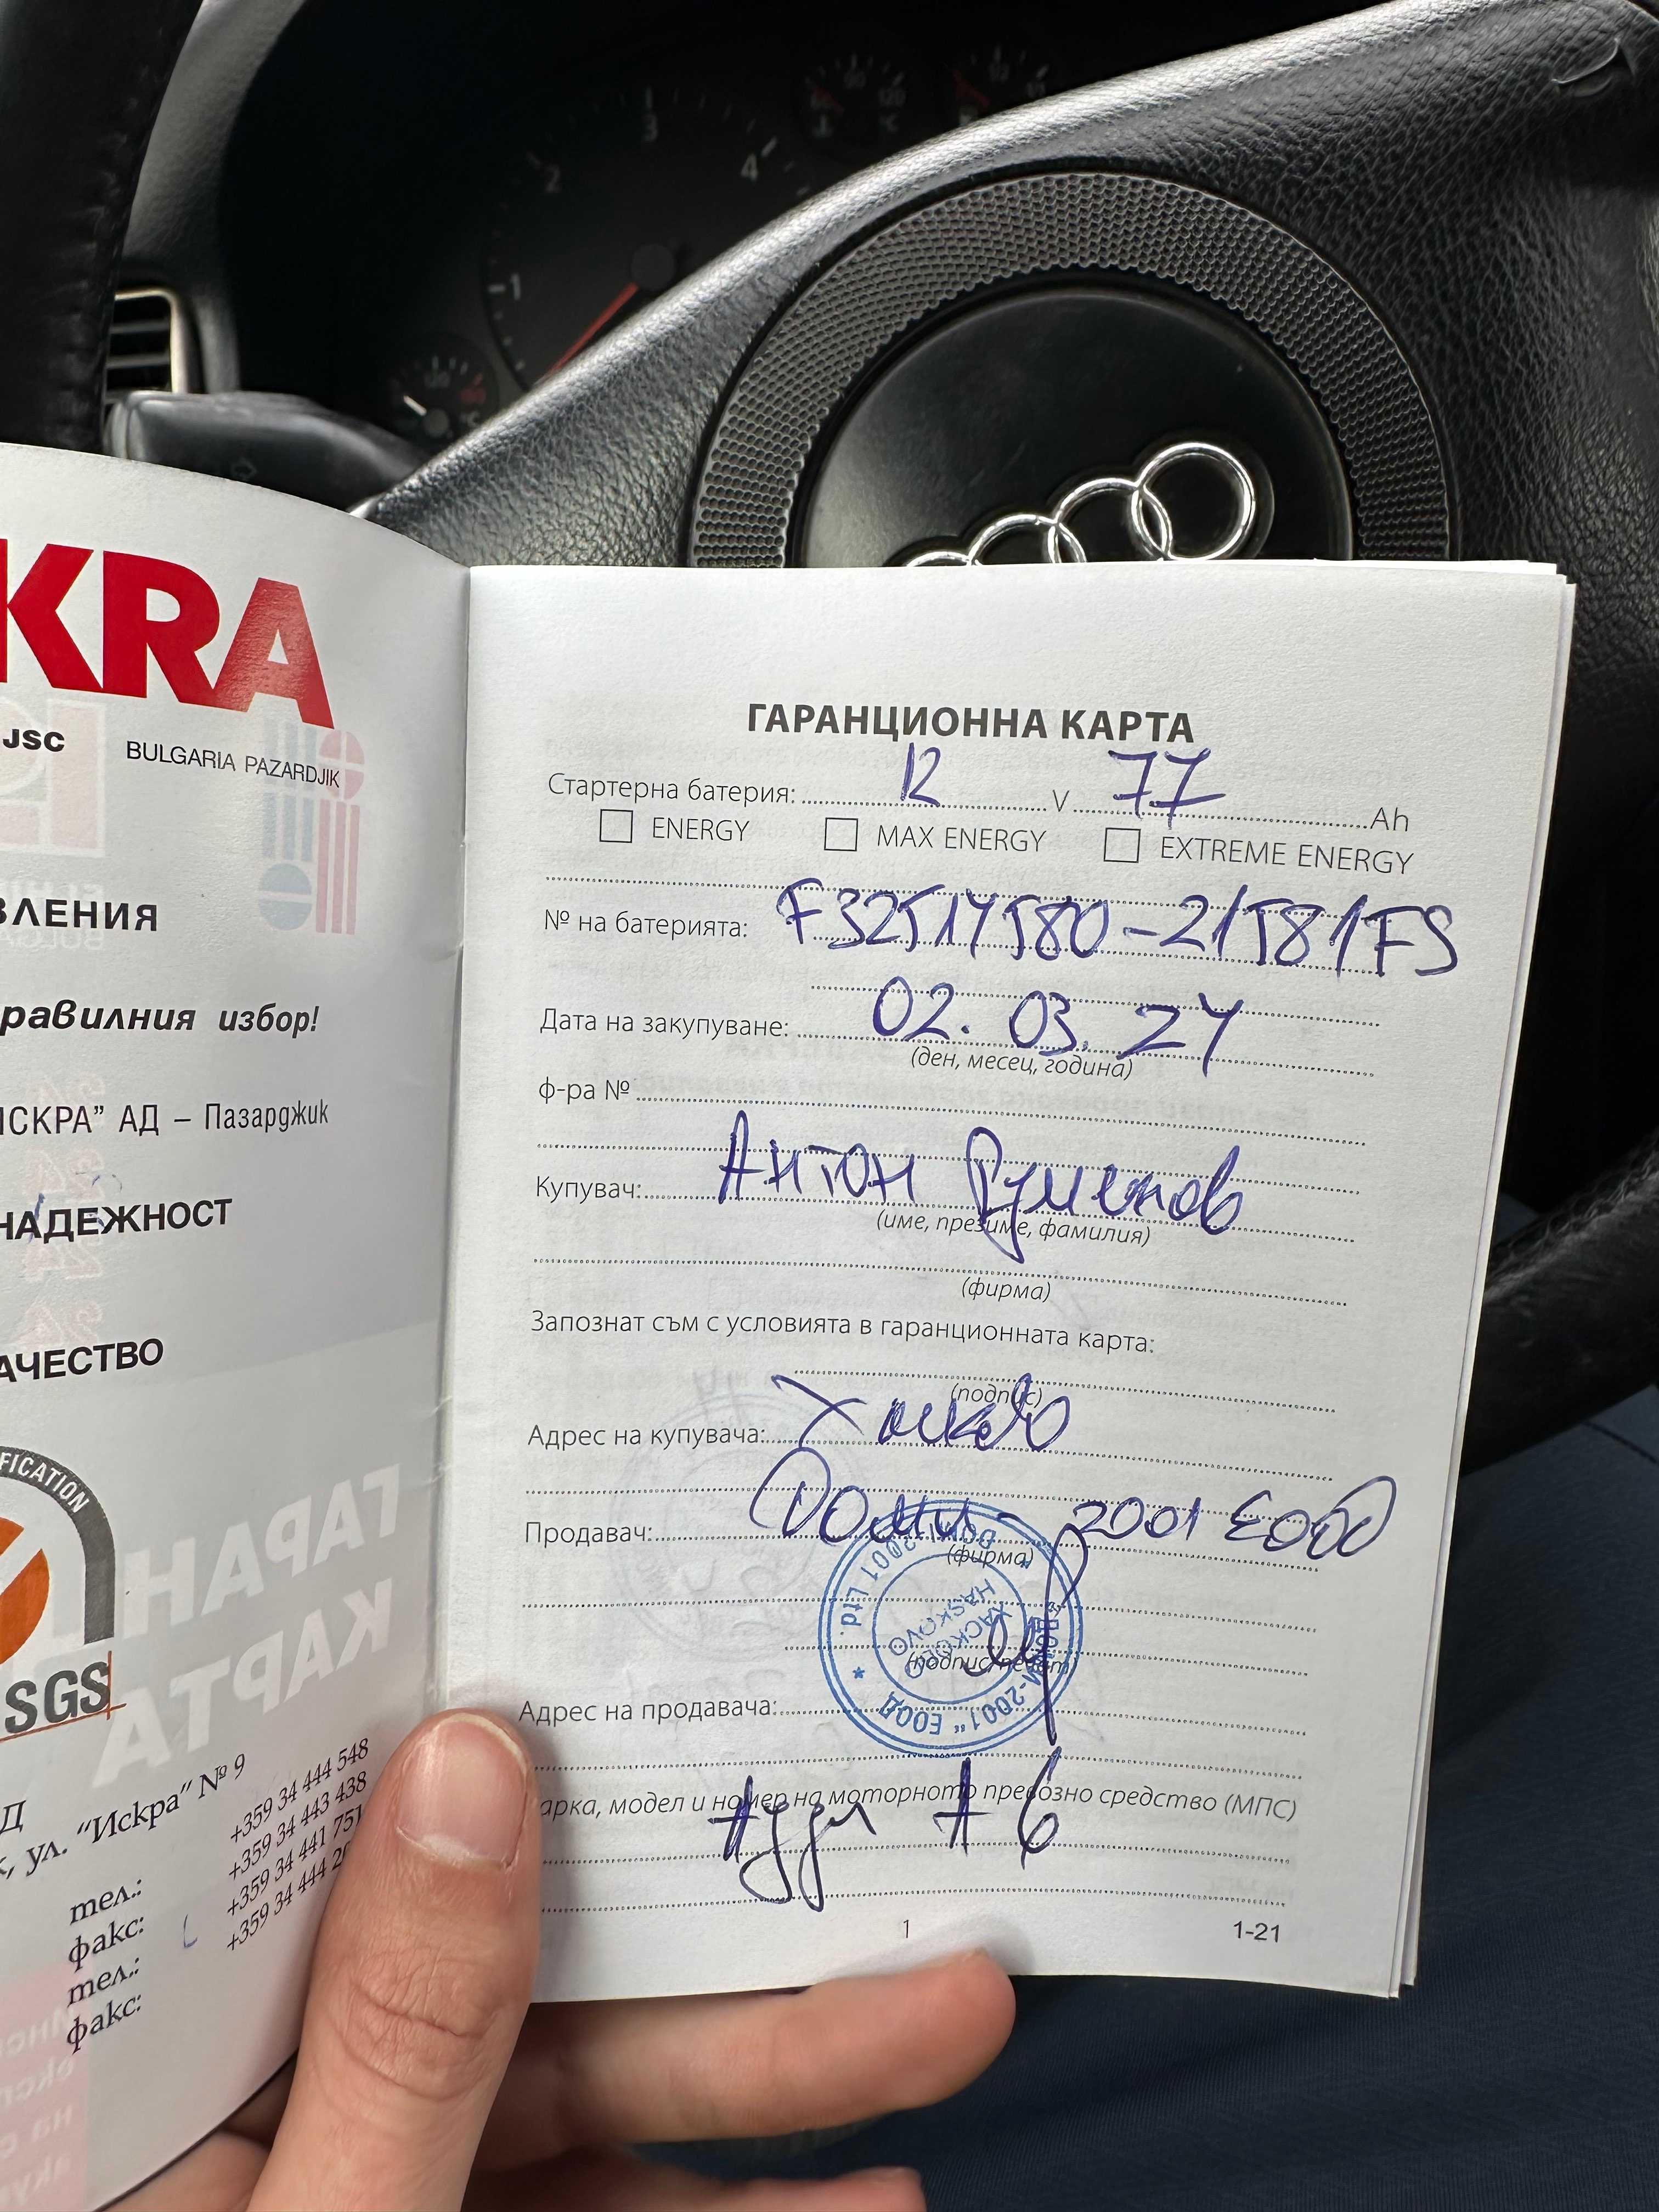 KRA
JSC BULGARIA PAZARDJIK
ВЛЕНИЯ
равилния избор!
ИСКРА” АД – Пазарджик
НАДЕЖНОСТ
АЧЕСТВО
FICATION
SGS
Д
к, ул. “Искра” № 9
тел.: +359 34 444 548
факс: +359 34 443 438
тел.: +359 34 441 751
факс: +359 34 444 2
ГАРАНЦИОННА КАРТА
Стартерна батерия: 12 V 77 Ah
ENERGY MAX ENERGY EXTREME ENERGY
№ на батерията: F32514580-21581FS
Дата на закупуване: 02.03.24
(ден, месец, година)
ф-ра №
Купувач: Антон Руменов
(име, презиме, фамилия)
(фирма)
Запознат съм с условията в гаранционната карта:
(подпис)
Адрес на купувача: Хасково
Продавач: Доми-2001 ЕООД
(фирма)
"ДОМИ-2001" ЕООД
DOMI-2001 Ltd.
ХАСКОВО
HASKOVO
(подпис, печат)
Адрес на продавача:
арка, модел и номер на моторното превозно средство (МПС)
Ауди А6
1 1-21